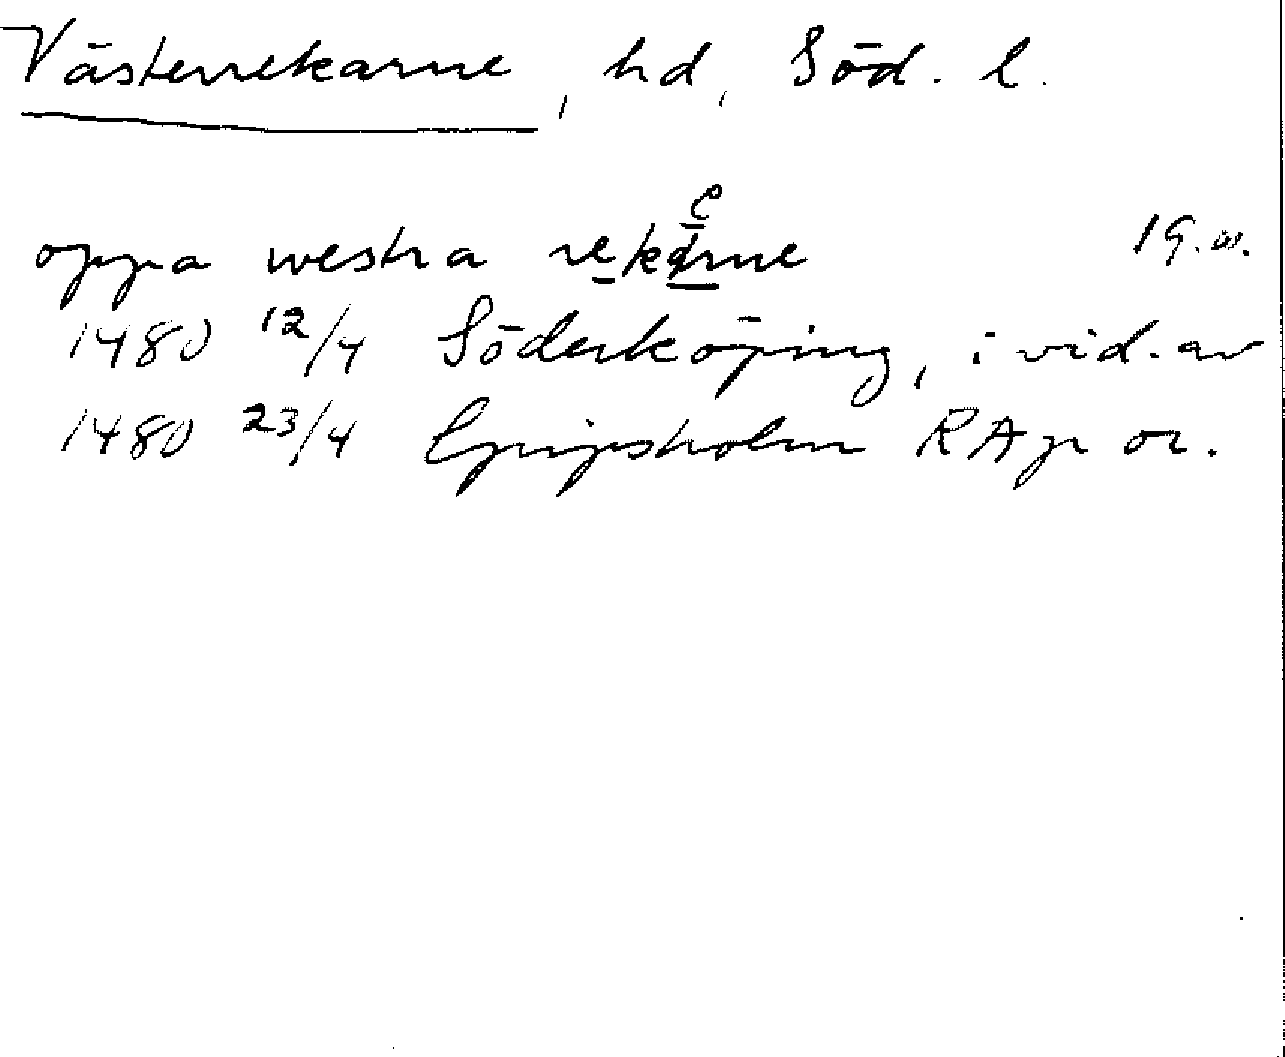 Västerrekarne, hd, Söd. l.
oppa westra rekærne
1480 12/4 Söderköping, i vid. av
1480 23/4 Gripsholm RAp or.